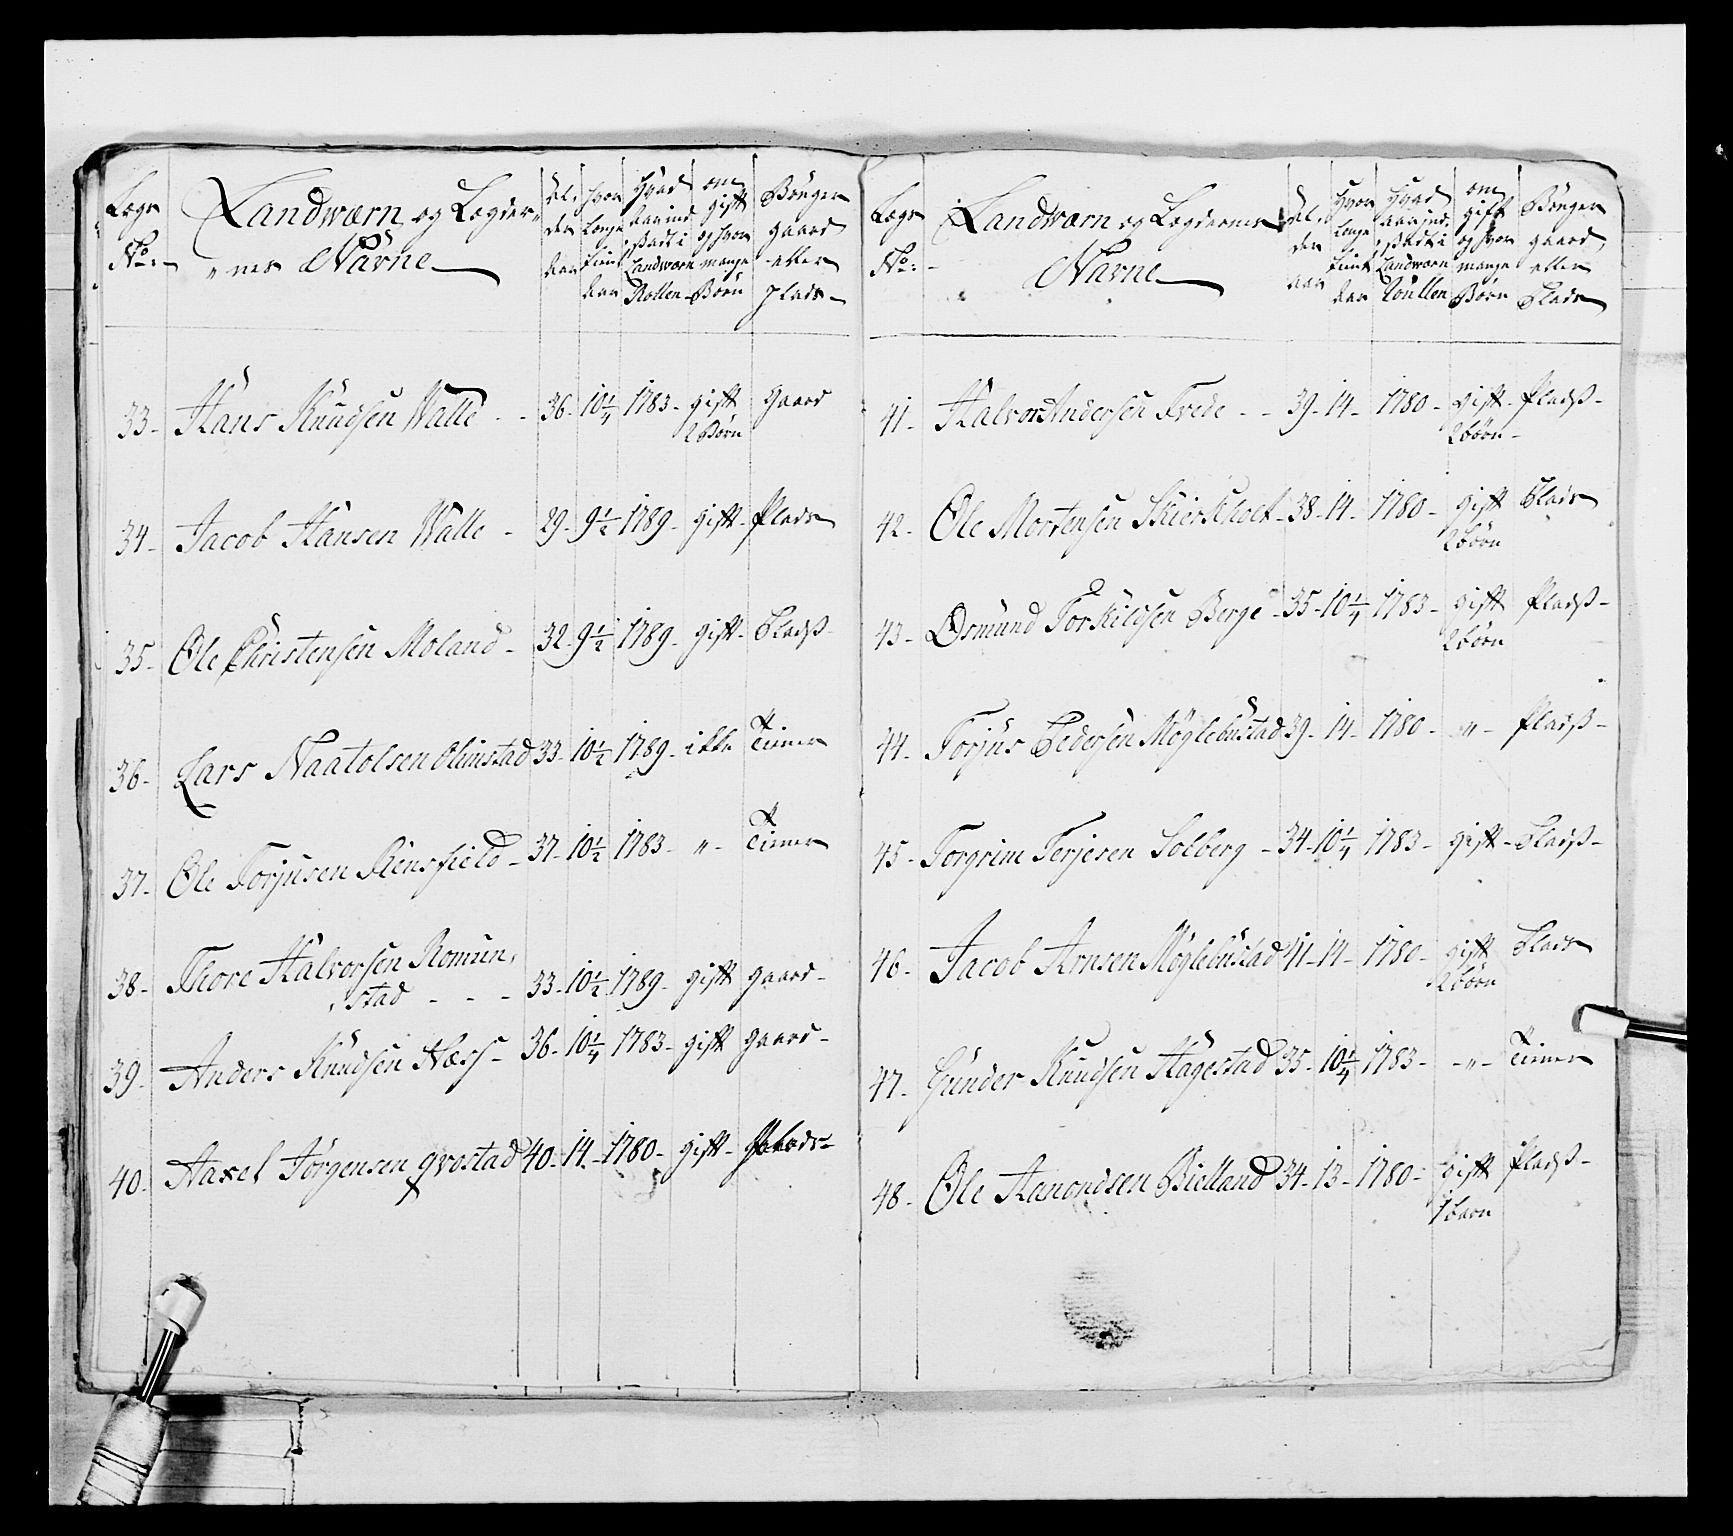 Legs No:
Landwærn og Legder-
nes Navne
Al-
der
Aar
hvor
Længe
tient
Aar
Hvad
Aar ind-
skadt i
Landwærn
Rollen
om
gift
og hvor
mange
Børn
Bruger
gaard
eller
plads
33 - Hans Knudsen Walle - - 36 - 10 1/4 1783 - gift 2 Børn Gaard
34 - Jacob Hansen Walle - 29 - 9 1/2 1789 - gift - Plads
35 - Ole Christensen Moland - 32 - 9 1/2 1789 - gift - Pladß -
36 - Lars Naatolsen Olimstad 33 - 10 1/2 1789 - ikke Tiener
37 - Ole Torjusen Rensfield - 37 - 10 1/2 1783 - " - Tiener
38 - Thore Halvorsen Romun-
stad - - - 33 - 10 1/2 1789 - gift gaard -
39 - Anders Knudsen Næss - 36 - 10 1/4 1783 - gift gaard -
40 - Aaxel Jørgensen Qvostad 40 - 14 - 1780 - gift -
Legs No:
Landwærn og Legdernes
Navne
Al-
der
aar
Hvor
Længe
tient
Aar
Hvad
aar ind-
skadt i
Landwærn
Roullen
om
gift
og hvor
mange
Børn
Bruger
gaard
eller
Plads
41 - Halvor Andersen Trede - - 39 - 14 - 1780 - gift - Pladß -
2 børn -
42 - Ole Mortensen Skierkholt - 38 - 14 - 1780 - gift Plads
2 børn
43 - Osmund Torkildsen Berge - 35 - 10 1/4 1783 - gift Pladß -
2 børn
44 - Torjus Pedersen Møglebustad 39 - 14 - 1780 - " - Pladß -
45 - Torgrim Terjesen Solberg - 34 - 10 1/4 1783 - gift - Pladß -
46 - Jacob Arnsen Møglebustad 41 - 14 - 1780 - gift Plads
2 børn
47 - Gunder Knudsen Hagestad 35 - 10 1/4 1783 - - " - Tiener
48 - Ole Aanondsen Bielland 34 - 13 - 1780 - gift Pladß -
1 barn